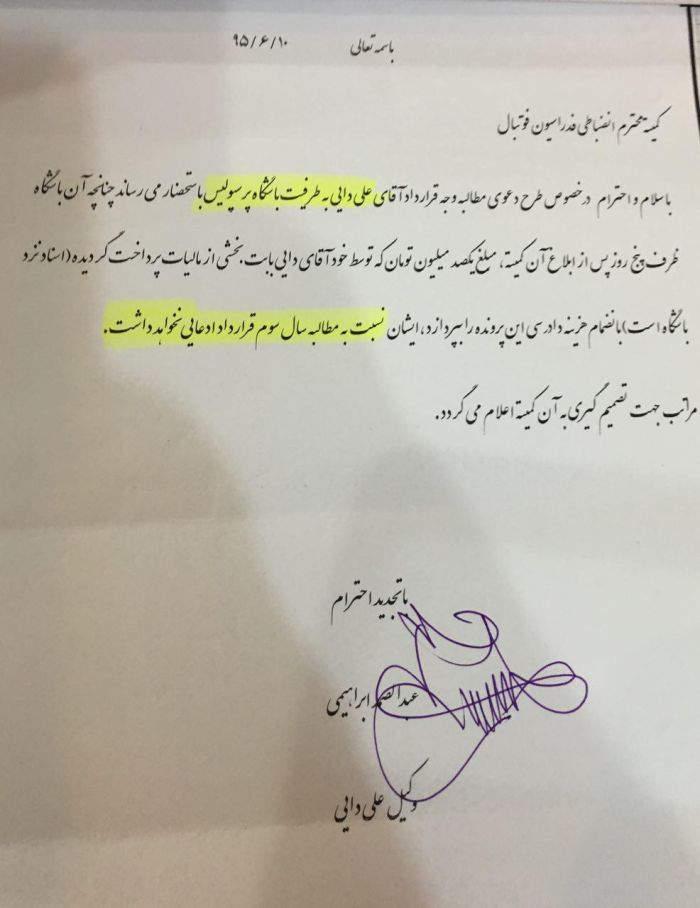 باسمه تعالی ۹۵/۶/۱۰
کمیته محترم انضباطی فدراسیون فوتبال
باسلام و احترام درخصوص طرح دعوی مطالبه وجه قرارداد آقای علی دایی به طرفیت باشگاه پرسپولیس باستحضار می رساند چنانچه آن باشگاه
ظرف پنج روز پس از ابلاغ آن کمیته، مبلغ یکصد میلیون تومان که توسط خود آقای دایی بابت بخشی از مالیات پرداخت گردیده (اسناد نزد
باشگاه است) بانضمام هزینه دادرسی این پرونده را بپردازد، ایشان نسبت به مطالبه سال سوم قرارداد ادعایی نخواهد داشت.
مراتب جهت تصمیم گیری به آن کمیته اعلام می گردد.
باتجدید احترام
عبدالصمد ابراهیمی
وکیل علی دایی